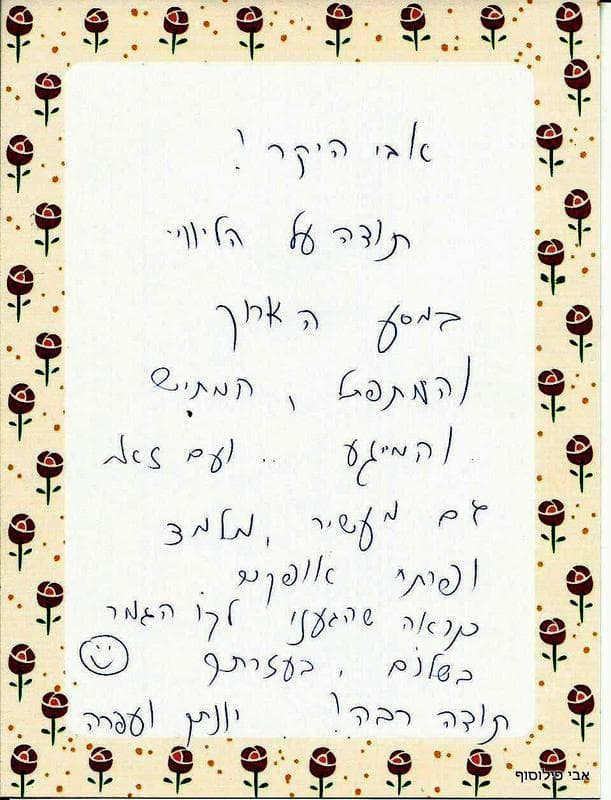 אבי היקר !
תודה על הליווי
במסע הארוך
והמתפתל, המתיש
והמייגע .. ועם זאת
גם מעשיר, מלמד
ופותח אופקים
כנראה שהגענו לקו הגמר
בשלום, בעזרתך
תודה רבה! יונית ועפרה
אבי פילוסוף